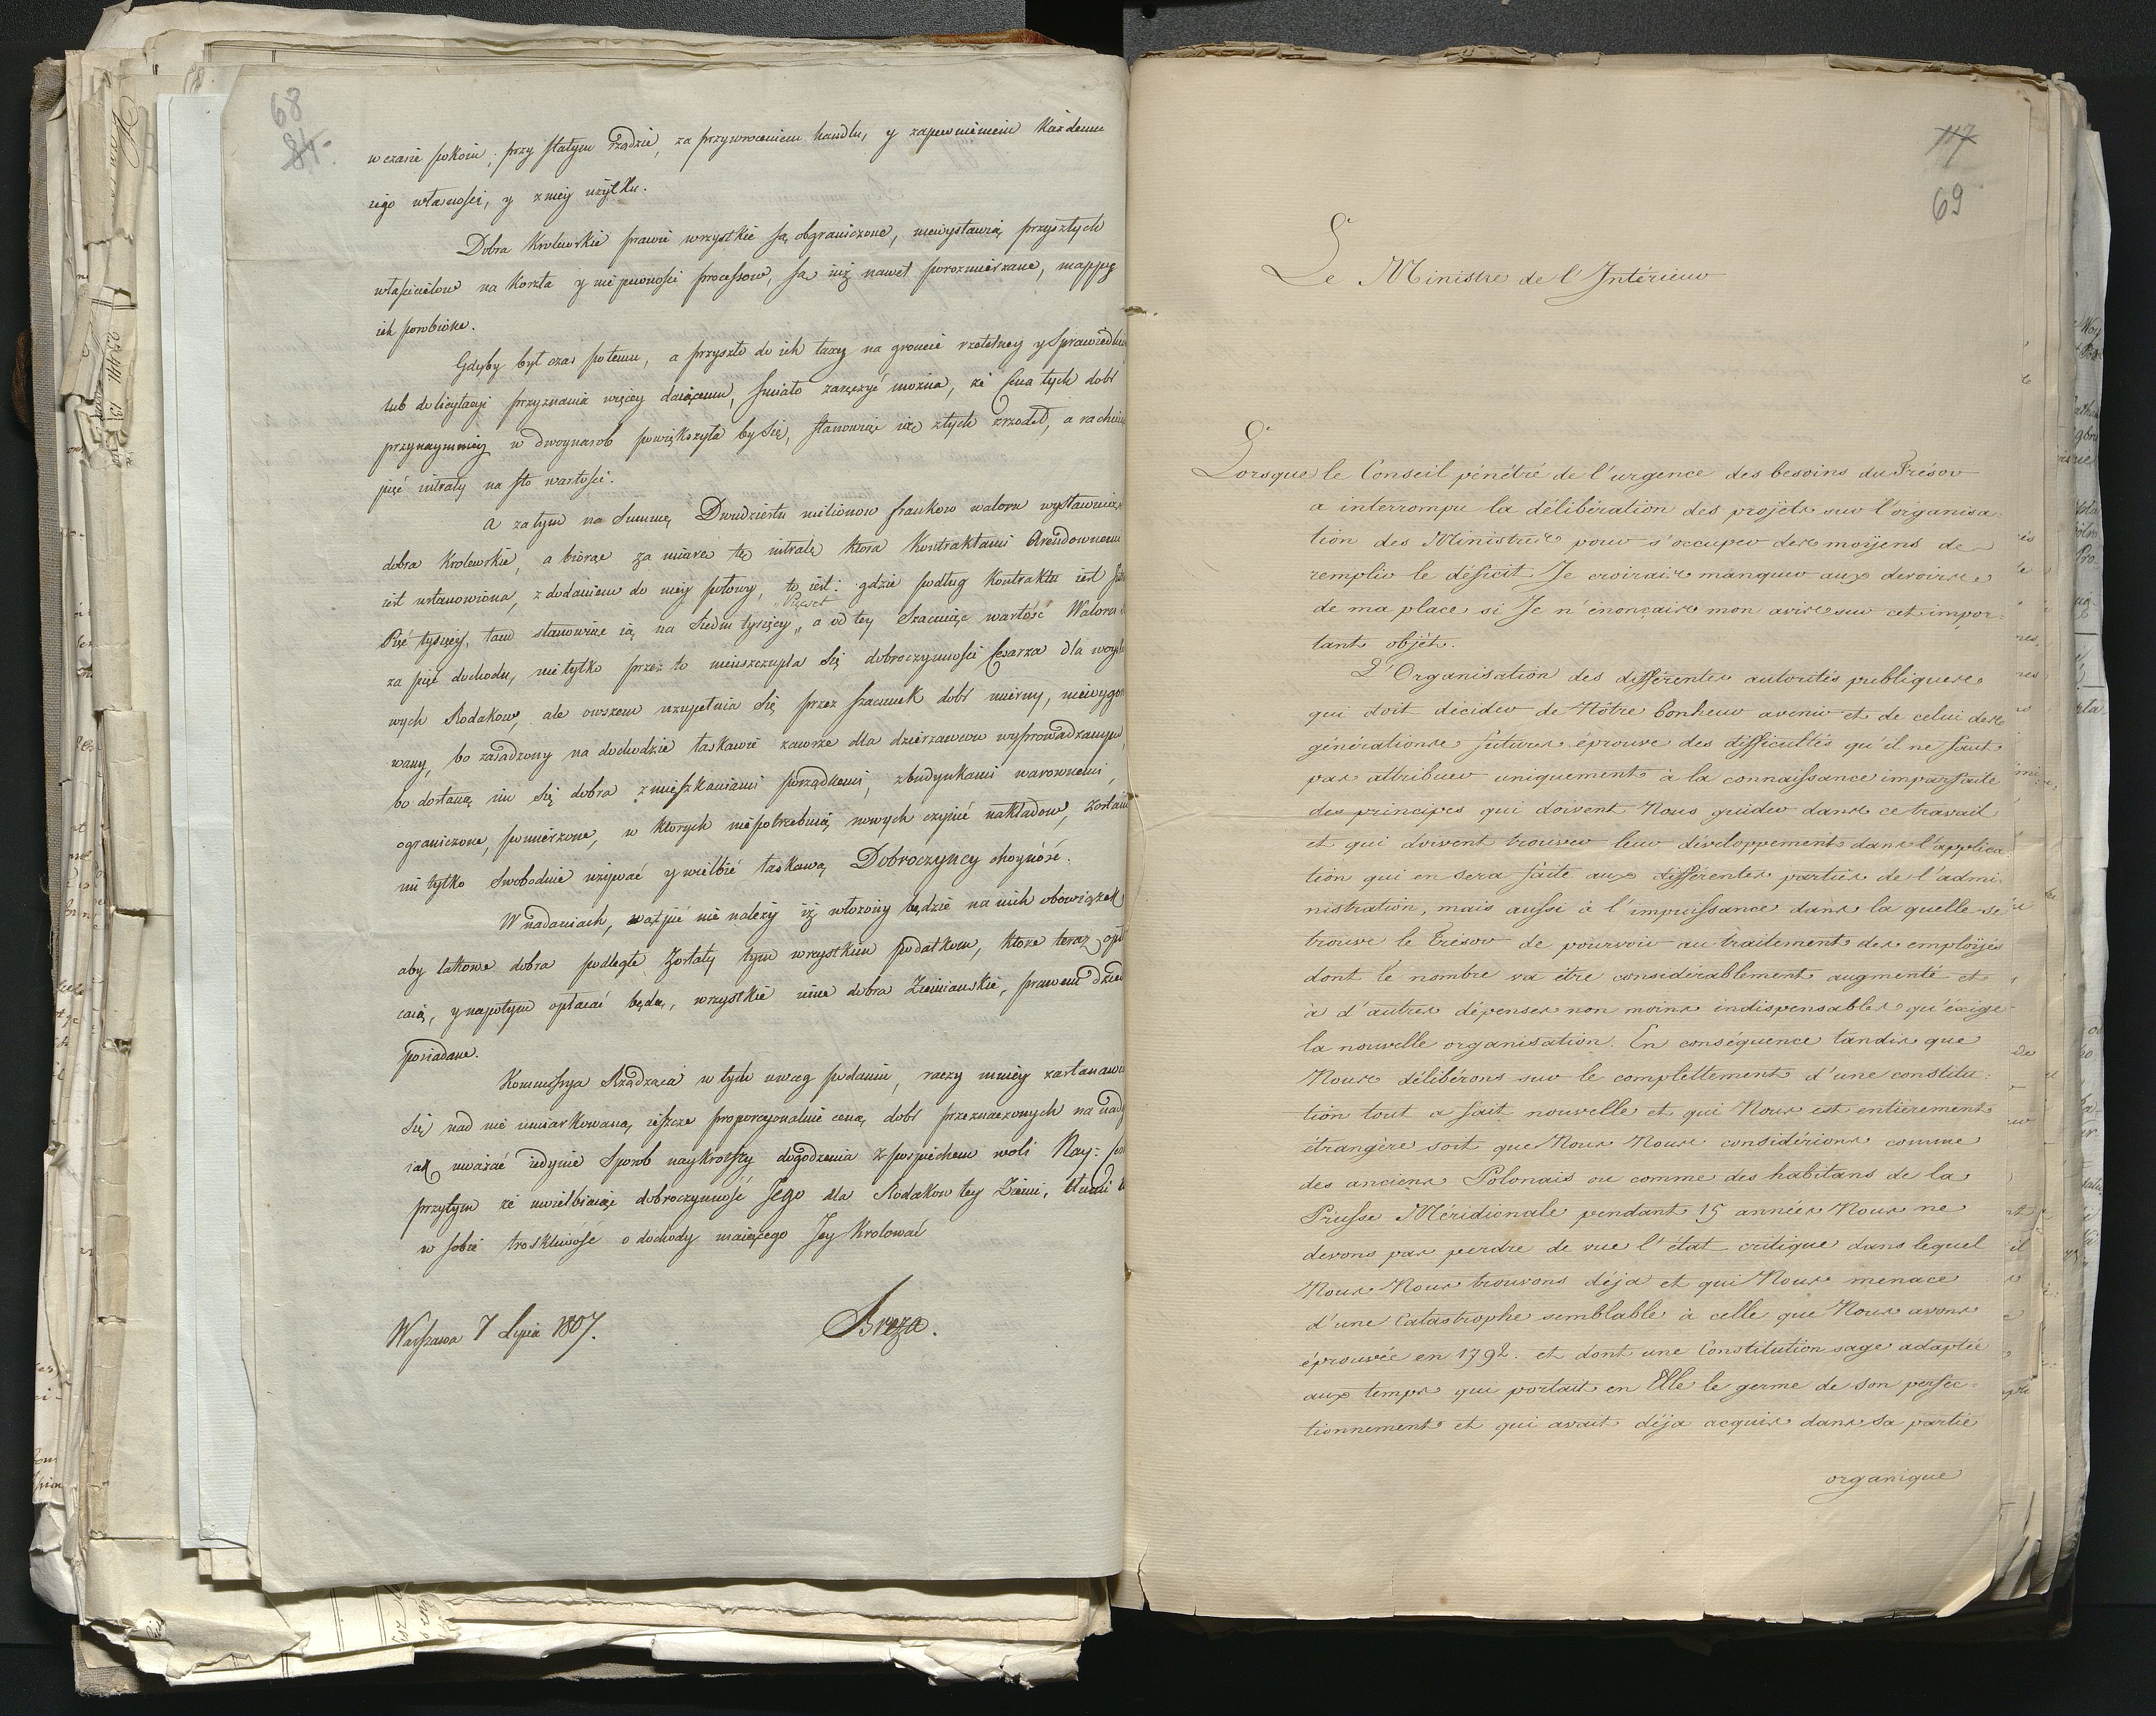 68
84.
w czasie pokoiu, przy stałym rządzie, za przywroceniem handlu, y zapewnieniem każdemu
iego własności, y z niey użytku.
Dobra Krolewskie prawie wszystkie są obgraniczone, niewystawią przyszłych
właścicielow na koszta y niepewności processow, są iuż nawet porozmierzane, mappy
ich porobione.
Gdyby był czas potemu, a przyszło do ich taxy na groncie rzetelney y sprawiedliw
lub do licytacyi przyznania więcey daiącemu, śmiało zaręczyć można, że Cena tych dobr
przynaymniey w dwoynasob powiększyła by się, stanowiąc ią z tych zrzodeł, a rachuiąc
pięć intraty na sto wartości.
A zatym na Summę Dwudziestu milionow frankow waloru wystawuiąc
dobra Krolewskie, a biorąc za miarę tę intratę ktora Kontraktami Arendownemi
iest ustanowiona, z dodaniem do niey połowy, to iest: gdzie podług Kontraktu iest
"Pięcset
Pięć tysięcy, tam stanowiąc ią na siedm tysięcy " a od tey szacuiąc wartość Waloru
za pięć dochodu, nie tylko przez to nieuszczupla się dobroczynności Cesarza dla
wych Rodakow, ale owszem uzupełnia się przez szacunek dobr mierny, niewygoro
wany, bo zasadzony na dochodzie łaskawie zawsze dla dzierzawcow wyprowadzanym,
bo dostaną im się dobra z mieszkaniami porządnemi, zbudynkami warownemi,
ograniczone, pomierzone, w ktorych niepotrzebuią nowych czynić nakładow,
im tylko swobodnie używać y wielbić łaskawą Dobroczyncy choyność.
W nadaniach, wątpić nie należy iż włożony będzie na nich obowiązek
aby takowe dobra podległe zostały tym wszystkim podatkom, ktore teraz opła
caią, y napotym opłacać będą, wszystkie inne dobra Ziemianskie, prawem dzied
posiadane.
Kommissya Rządząca w tych uwag podaniu, raczy mniey zastanawiać
się nad nie umiarkowaną ieszcze proporcyonalnie ceną dobr przeznaczonych na
iak uważać iedynie sposob naykrotszy dogodzenia z pospiechem woli Nay:
przytym że uwielbiaiąc dobroczynność Jego dla Rodakow tey Ziemi, tłumi
w sobie troskliwość o dochody maiącego Jey Krolować
Warszawa 7 Lipca 1807.
Breza.
117
69
Le Ministre de l'Intérieur
Lorsque le Conseil pénétré de l'urgence des besoins du Trésor
a interrompu la délibération des projets sur l'organisa:
tion des Ministres pour s'occuper des moÿens de
remplir le déficit Je croirais manquer aux devoirs
de ma place si Je n'énonçais mon avis sur cet impor:
tant objét.
L'Organisation des différentes autorités publiques
qui doit décider de Nôtre bonheur avenir et de celui des
générations futures éprouve des difficultés qu'il ne faut
pas attribuer uniquement à la connaissance imparfaite
des principes qui doivent Nous guider dans ce travail
et qui doivent trouver leur développement dans l'applica:
tion qui en sera faite aux différentes parties de l'admi:
nistration, mais aussi à l'impuissance dans la quelle se
trouve le Trésor de pourvoir au traitement des emploÿés
dont le nombre va être considérablement augmenté et
à d'autres dépenses non moins indispensables qu'éxige
la nouvelle organisation. En conséquence tandis que
Nous délibérons sur le complettement d'une constitu:
tion tout a fait nouvelle et qui Nous est entièrement
étrangère soit que Nous Nous considérions comme
des anciens Polonais ou comme des habitans de la
Prusse Méridionale pendant 15 années Nous ne
devons pas perdre de vue l'état critique dans lequel
Nous Nous trouvons déja et qui Nous menace
d'une Catastrophe semblable à celle que Nous avons
éprouvée en 1792. et dont une Constitution sage adaptée
aux temps qui portait en Elle le germe de son perfec:
tionnement et qui avait déja acquis dans sa partie
organique